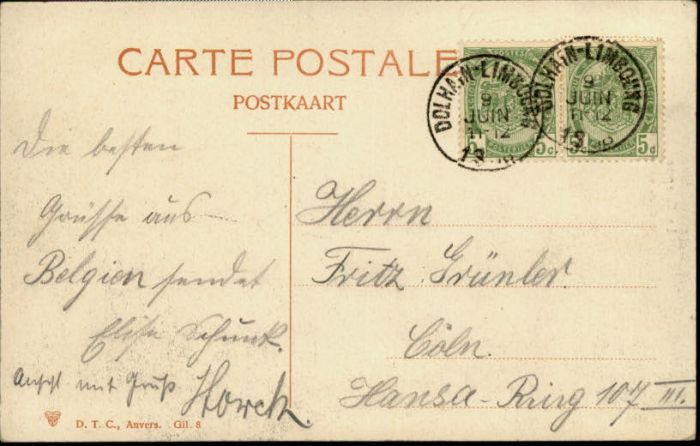 CARTE POSTALE
POSTKAART
DOLHAIN-LIMBOURG
9
JUIN
11-12
DOLHAIN-LIMBOURG
9
JUIN
11-12
5c
5c
Die besten
Grüsse aus
Belgien sendet
Elise Schunk.
mit Gruß
Herrn
Fritz Grünler.
Cöln.
Hansa-Ring 107 III.
D. T. C., Anvers. Gil. 8